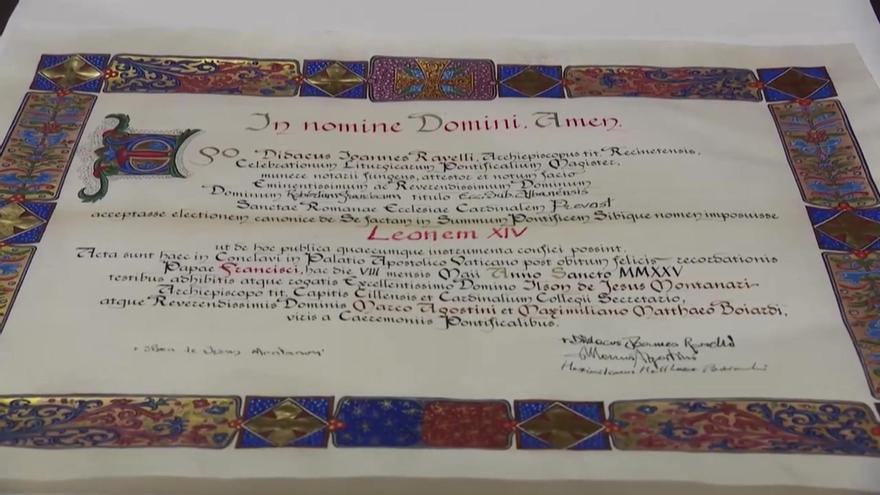 In nomine Domini. Amen.
Ego Didacus Ioannes Ravelli, Archiepiscopus tit. Recinetensis,
Celebrationum Liturgicarum Pontificalium Magister,
munere notarii fungens, attestor et notum facio
Eminentissimum ac Reverendissimum Dominum
Dominum Robertum Franciscum titulo Ecc. Sub. Albanensis
Sanctae Romanae Ecclesiae Cardinalem Prevost
acceptasse electionem canonice de Se factam in Summum Pontificem Sibique nomen imposuisse
Leonem XIV
ut de hoc publica quaecumque instrumenta confici possint.
Acta sunt haec in Conclavi in Palatio Apostolico Vaticano post obitum felicis recordationis
Papae Francisci, hac die VIII mensis Maii Anno Sancto MMXXV
testibus adhibitis atque rogatis Excellentissimo Domino Ilson de Jesus Montanari
Archiepiscopo tit. Capitis Cillensis et Cardinalium Collegii Secretario,
atque Reverendissimis Dominis Marco Agostini et Maximiliano Matthaeo Boiardi,
viris a Caeremoniis Pontificalibus.
de Jesus Montanari
+ Didacus Ioannes Ravelli
Marcus Agostini